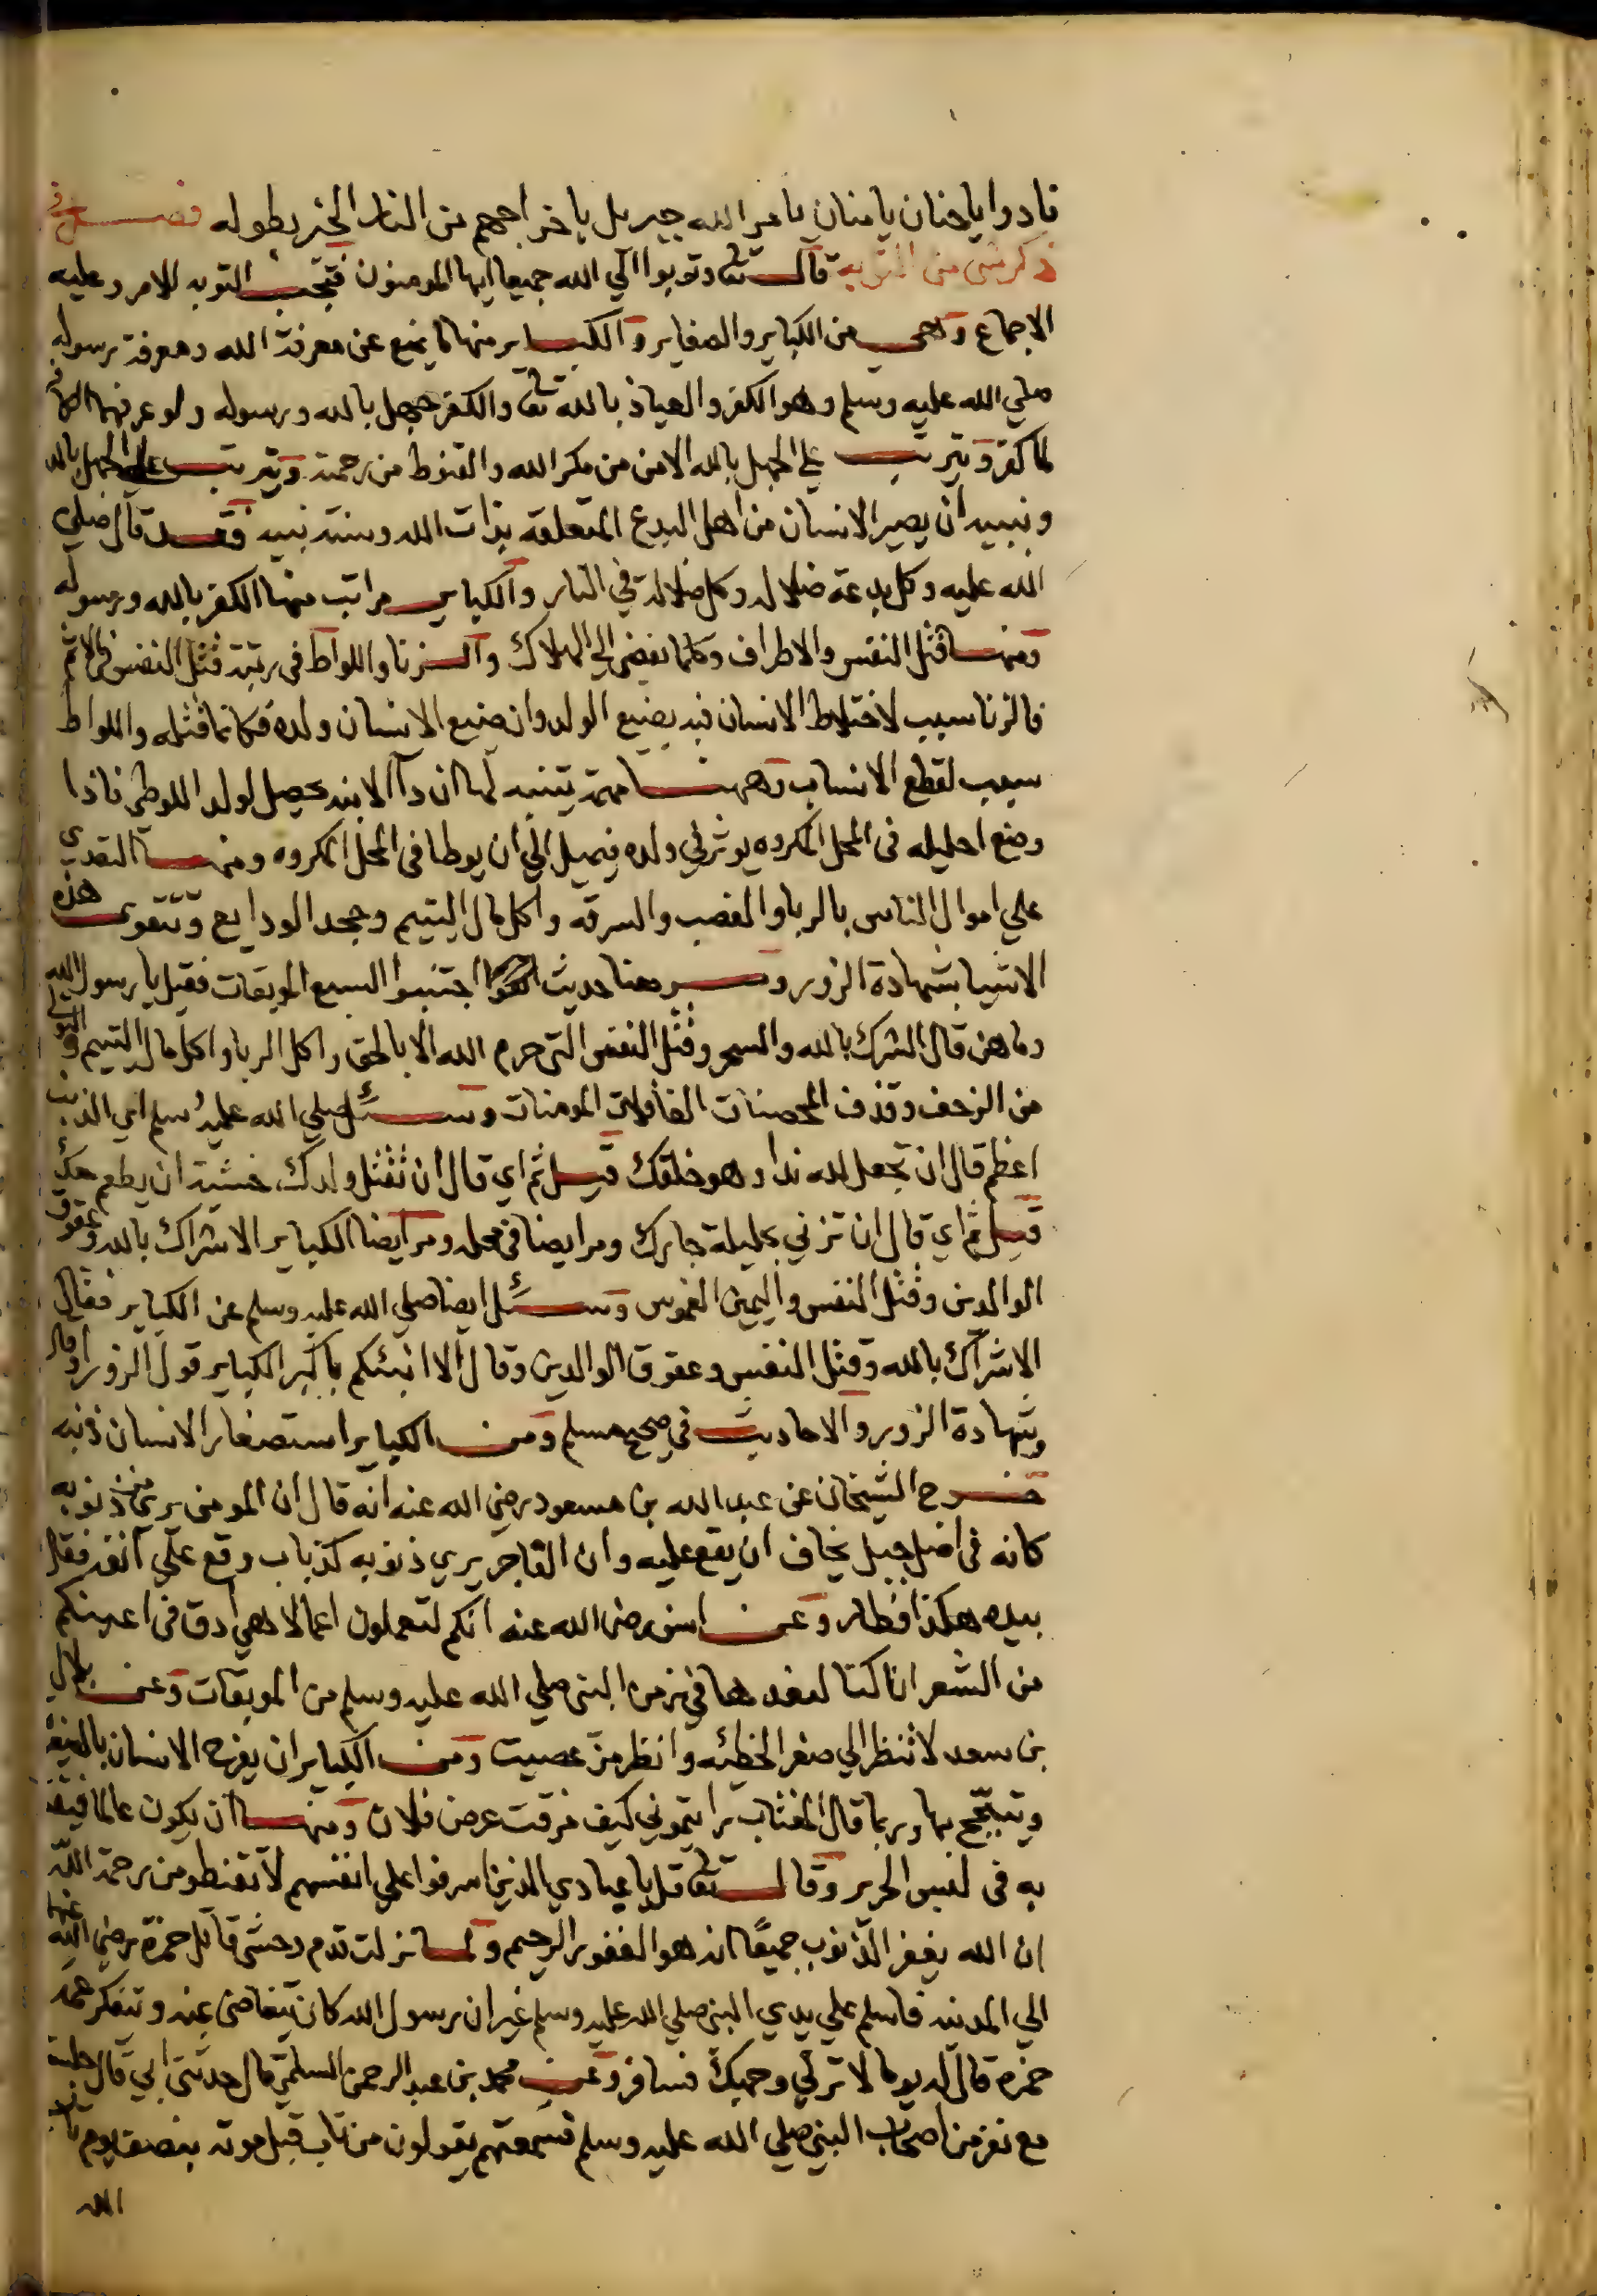 نادوا ياحنان يامنان يامر الله جبريل باخراجهم من النار الخبر بطوله فصل في
ذكر شي من التوبه قال تعا وتوبوا الي الله جميعا ايها المومنون فتجب التوبه للامر وعليه
الاجماع وهي من الكباير والصغاير والكباير منها ما يمنع عن معرفة الله ومعرفة رسوله
صلي الله عليه وسلم وهو الكفر والعياذ بالله تعا والكفر جهل بالله ورسوله ولو عرفهما الكافر
لما كفر ويترتب علي الجهل بالله الامن من مكر الله والقنوط من رحمته ويترتب علي الجهل بالله
ونبييه ان يصير الانسان من اهل البدع المتعلقه بذات الله وسنة نبيه فقد قال صلي
الله عليه وكل بدعة ضلاله وكل ضلالة في النار والكباير مراتب منها الكفر بالله ورسوله
ومنها قتل النفس والاطراف وكلما يفضي الي الهلاك والزنا واللواط في رتبة قتل النفس في الاثم
فالزنا سبب لاختلاط الانسان فيه يضيع الولد وان ضيع الانسان ولده فكانما قتله واللواط
سبب لقطع الانساب وههنا مهمة يتنبه لها ان دآ الابنه يحصل لولد اللوطي فاذا
وضع احليله في المحل المكروه يوثر في ولده فيميل الي ان يوطا في المحل المكروه ومنها التعدي
علي اموال الناس بالربا والغصب والسرقه واكل مال اليتيم وجحد الودايع وتتقوى هذه
الاشيا بشهادة الزور ومر هنا حديث اجتنبوا السبع الموبقات فقيل يا رسول الله
وما هن قال الشرك بالله والسحر وقتل النفس التي حرم الله الا بالحق واكل الربا واكل مال اليتيم والتولي
من الزحف وقذف المحصنات الغافلات المومنات وسئل صلي الله عليه وسلم اي الذنب
اعظم قال ان تجعل لله ندا وهو خلقك قيل ثم اي قال ان تقتل ولدك خشية ان يطعم معك
قيل ثم اي قال ان تزني بحليلة جارك ومر ايضا في محله ومر ايضا الكباير الاشراك بالله وعقوق
الوالدين وقتل النفس واليمين الغموس وسئل ايضا صلي الله عليه وسلم عن الكباير فقال
الاشراك بالله وقتل النفس وعقوق الوالدين وقال الا انبئكم باكبر الكباير قول الزور او قال
وشهادة الزور والاحاديث في صحيح مسلم ومن الكباير استصغار الانسان ذنبه
خرج الشيخان عن عبد الله بن مسعود رضي الله عنه انه قال ان المومن يرى ذنوبه
كانه في اصل جبل يخاف ان يقع عليه وان الفاجر يري ذنوبه كذباب وقع علي انفه فقال
بيده هكذا فطار وعن انس رضي الله عنه انكم لتعملون اعمالا هي ادق في اعينكم
من الشعر انا كنا لنعدها في زمن النبي صلي الله عليه وسلم من الموبقات وعن بلال
بن سعد لا تنظر الي صغر الخطئه وانظر من عصيت ومن الكباير ان يفرح الانسان بالغيبة
ويتبجح بها وربما قال المغتاب رايتموني كيف مزقت عرض فلان ومنها ان يكون عالما فيقتدى
به في لبس الحرير وقال تعا قل ياعبادي الذين اسرفوا علي انفسهم لا تقنطو من رحمة الله
ان الله يغفر الذنوب جميعًا انه هو الغفور الرحيم ولما نزلت قدم وحشي قاتل حمزة رضي الله عنهما
الي المدينه فاسلم علي يدي النبي صلي الله عليه وسلم غير ان رسول الله كان يتغاضى عنه وتتفكر عمه
حمزه قال له يوما لا ترني وجهك فسافر وعن محمد بن عبد الرحمن السلمي قال حدثني ابي قال جلست
مع نفر من اصحاب النبي صلي الله عليه وسلم فسمعتهم يقولون من تاب قبل موته بنصف يوم تاب
الله